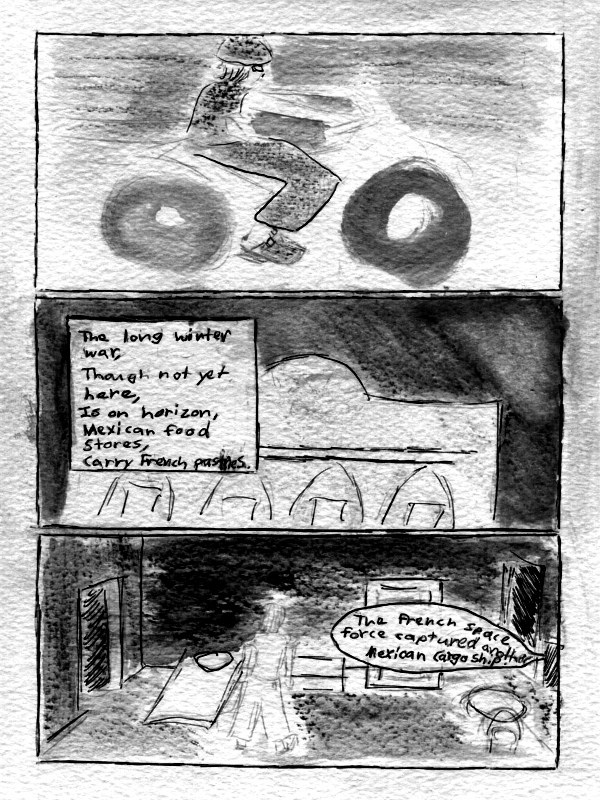 The long winter
war,
Though not yet
here,
Is on horizon,
Mexican food
Stores,
Carry French pastries.
The French space
force captured another
Mexican Cargo ship!